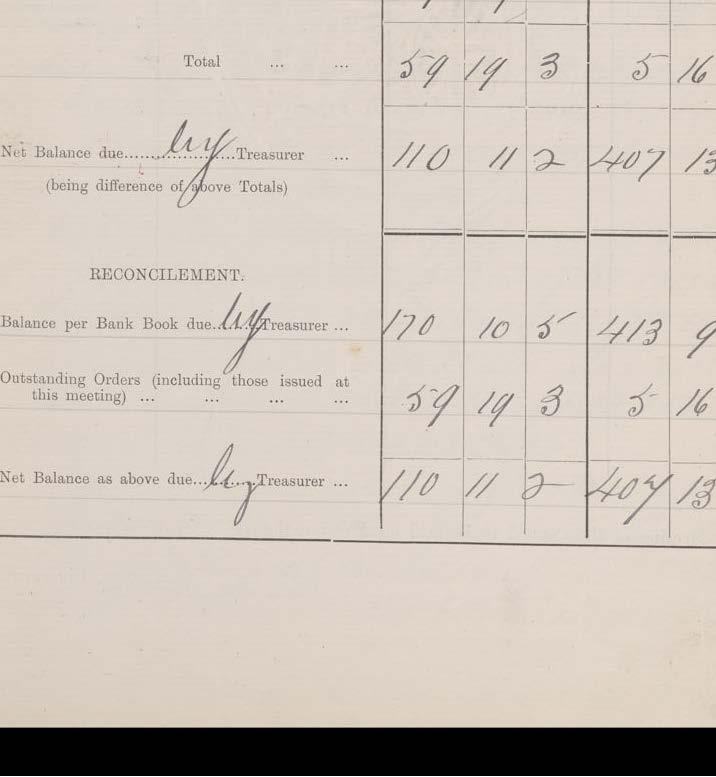 Total ... ... 59 19 3 5 16
Net Balance due......by......Treasurer ... 110 11 2 407 13
(being difference of above Totals)
RECONCILEMENT.
Balance per Bank Book due...by...Treasurer ... 170 10 5 413 9
Outstanding Orders (including those issued at
this meeting) ... ... ... ... 59 19 3 5 16
Net Balance as above due...by...Treasurer ... 110 11 2 407 13